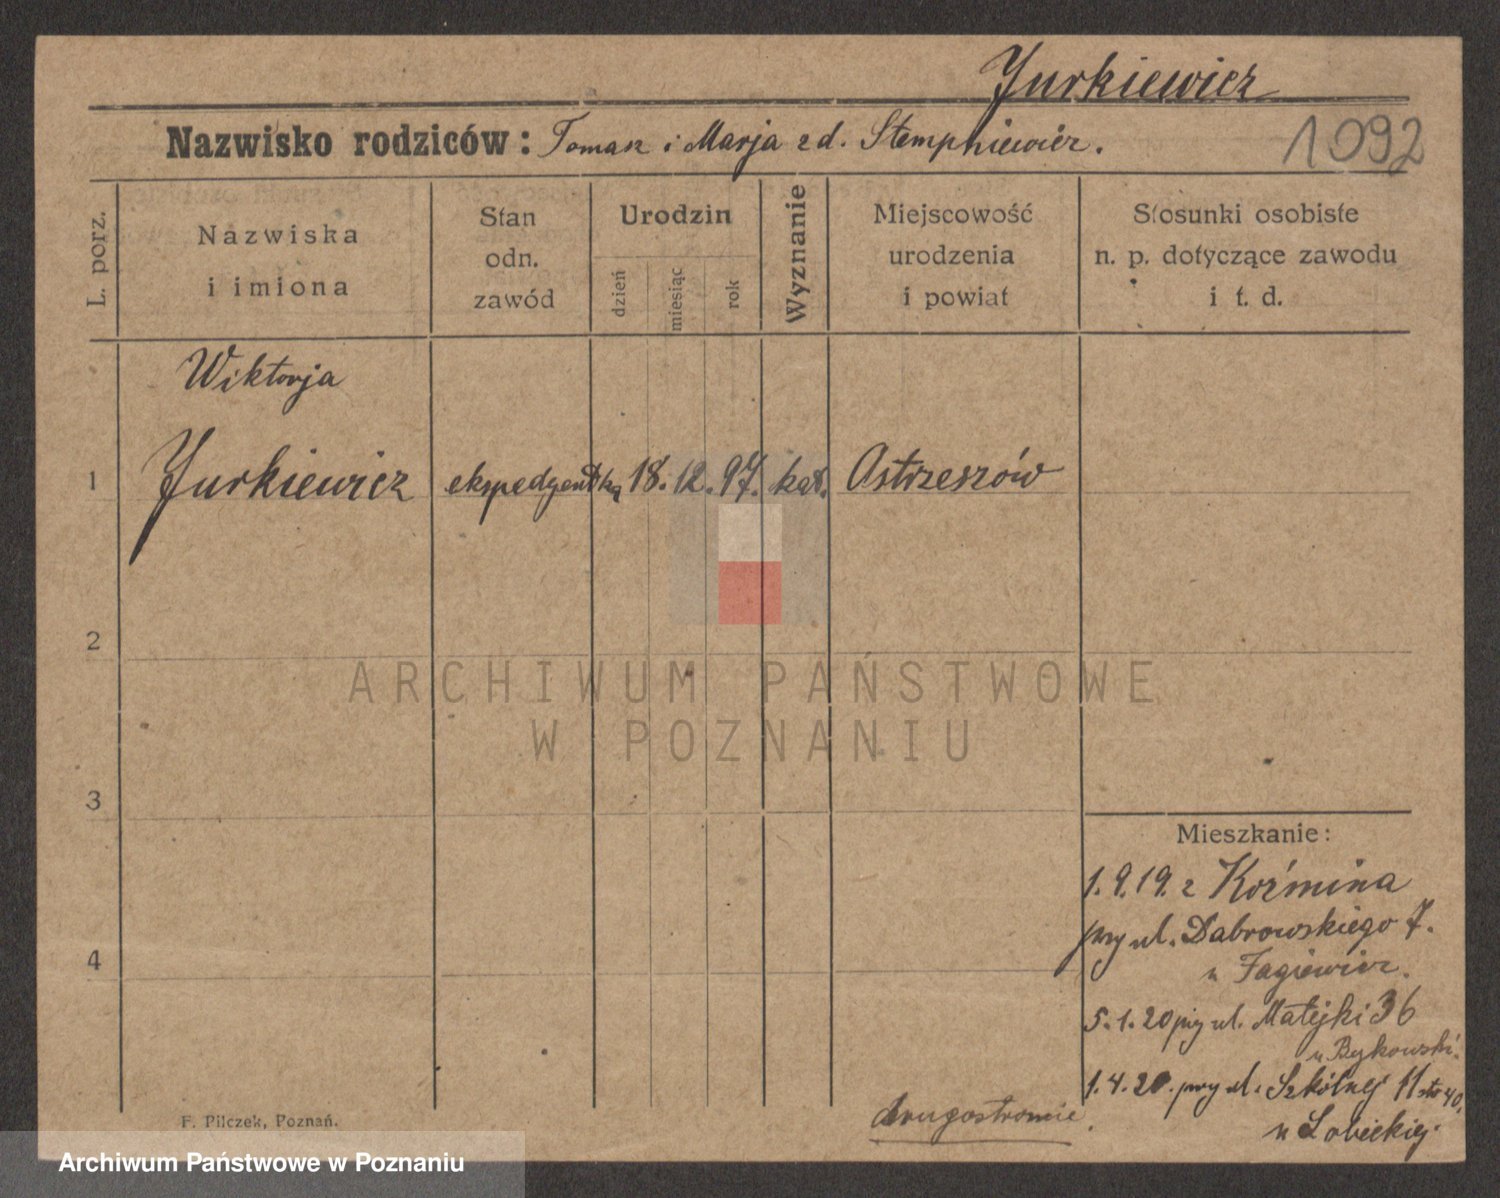 Jurkiewicz
Nazwisko rodziców: Tomasz i Marja z d. Stempniewicz.
1092
L. porz.
Nazwiska
i imiona
Stan
odn.
zawód
Urodzin
dzień
miesiąc
rok
Wyznanie
Miejscowość
urodzenia
i powiat
Stosunki osobiste
n. p. dotyczące zawodu
i t. d.
Wiktorja
1 Jurkiewicz ekspedyentką 18. 12. 97. kat. Ostrzeszów
2
ARCHIWUM PAŃSTWOWE
W POZNANIU
3
Mieszkanie:
1.9.19. z Koźmina
przy ul. Dąbrowskiego 7.
u Fagiewicz.
4
5.1.20 przy ul. Matejki 36
u Bykowski.
1.4.20. przy ul. Szkólnej 11 str 40.
u Lobeckiej
drugostronie.
F. Pilczek, Poznań.
Archiwum Państwowe w Poznaniu